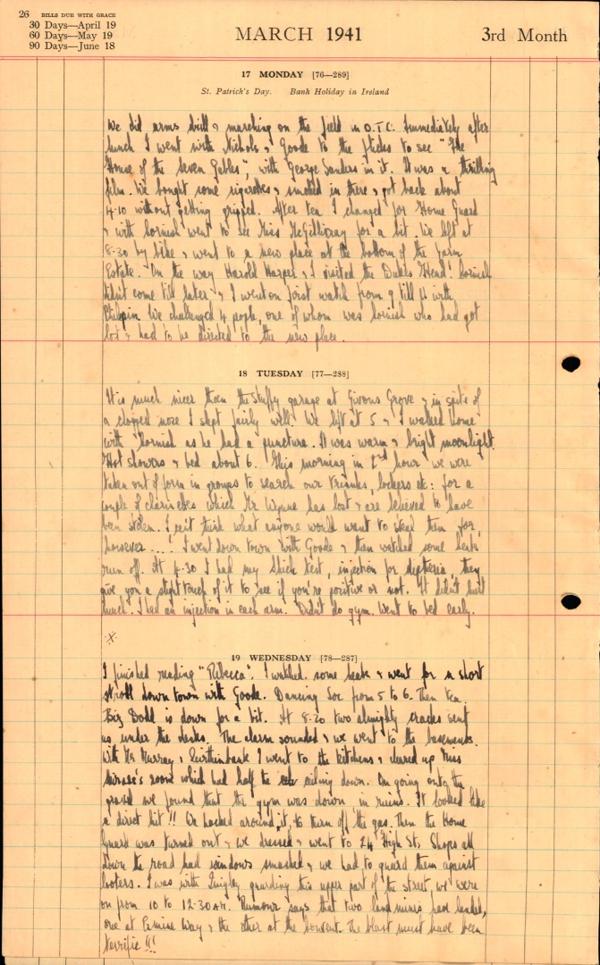 26 BILLS DUE WITH GRACE
30 Days—April 19
60 Days—May 19
90 Days—June 18
MARCH 1941
3rd Month
17 MONDAY [76—289]
St. Patrick's Day. Bank Holiday in Ireland
We did arms drill & marching on the field in O.T.C. Immediately after
lunch I went with Nichols & Goode to the flicks to see "The
House of the Seven Gables", with George Sanders in it. It was a thrilling
film. We bought some cigarettes & smoked in there & got back about
4.10 without getting gripped. After tea I changed for Home Guard
& with Cornish went to see Miss McGillivray for a bit. We left at
8.30 by bike & went to a new place at the bottom of the farm
Estate. On the way Harold Harper & I visited the Dukes Head. Cornish
didn't come till later & I went on first watch from 9 till 11 with
We challenged 4 people, one of whom was Cornish who had got
lost & had to be directed to the new place.
18 TUESDAY [77—288]
It is much nicer than the stuffy garage at Givons Grove & in spite of
a clogged nose I slept fairly well. We left at 5 & I walked home
with Cornish as he had a puncture. It was warm & bright moonlight.
Hot showers & bed about 6. This morning in 2nd hour we were
taken out of form in groups to search our trunks, lockers etc: for a
couple of clarinettes which Mr Wynne has lost & are believed to have
been stolen. I can't think what anyone would want to steal them for,
however ...! I went down town with Goode & then watched some heats
run off. At 4.30 I had my Shick test, injection for diptheria, they
give you a slight touch of it to see if you're positive or not. It didn't hurt
much. I had an injection in each arm. Didn't do gym. Went to bed early.
X
19 WEDNESDAY [78—287]
I finished reading "Rebecca". I watched some heats & went for a short
stroll down town with Goode. Dancing Soc from 5 to 6. Then tea.
Big Dodd is down for a bit. At 8.20 two almighty cracks sent
us under the desks. The alarm sounded & we went to the basements.
With Mr Murray & I went to the kitchens & cleared up Miss
room which had half the ceiling down. On going onto the
gravel we found that the gym was down in ruins. It looked like
a direct hit!! We hacked around it, to turn off the gas. Then the Home
Guard was turned out & we dressed & went to 24 High St. Shops all
down the road had windows smashed & we had to guard them against
looters. I was with Quigley guarding the upper part of the street, we were
on from 10 to 12.30 A.M. Rumour says that two land mines have landed,
one at Way & the other at the Convent. The blast must have been
terrific!!!